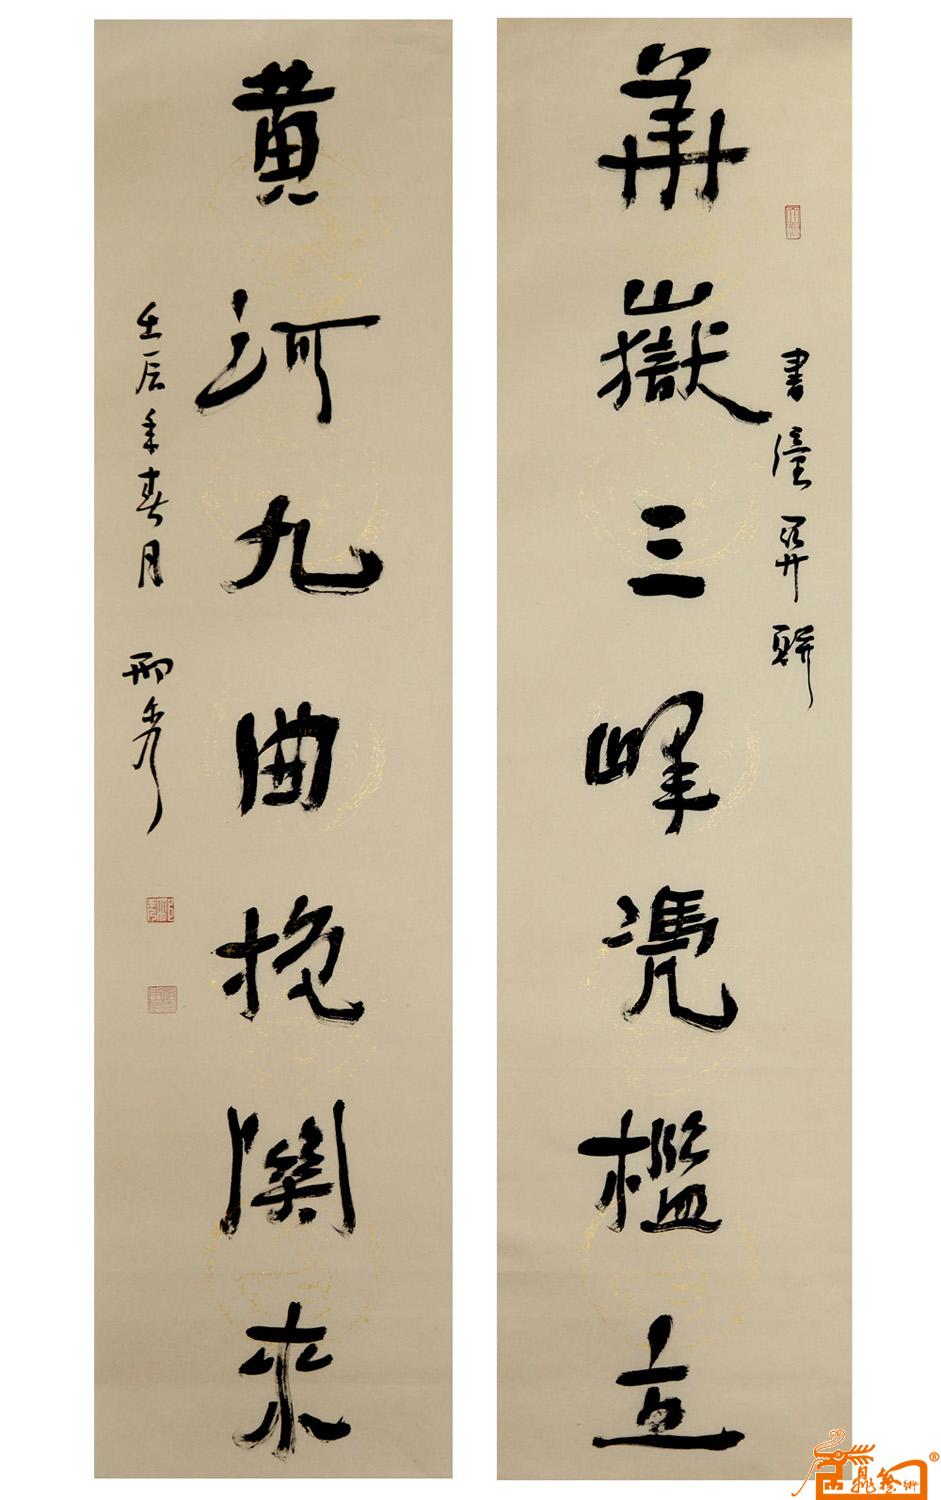 華嶽三峰凭檻立
書潼關聯
黄河九曲抱關来
壬辰年春月
邢秀